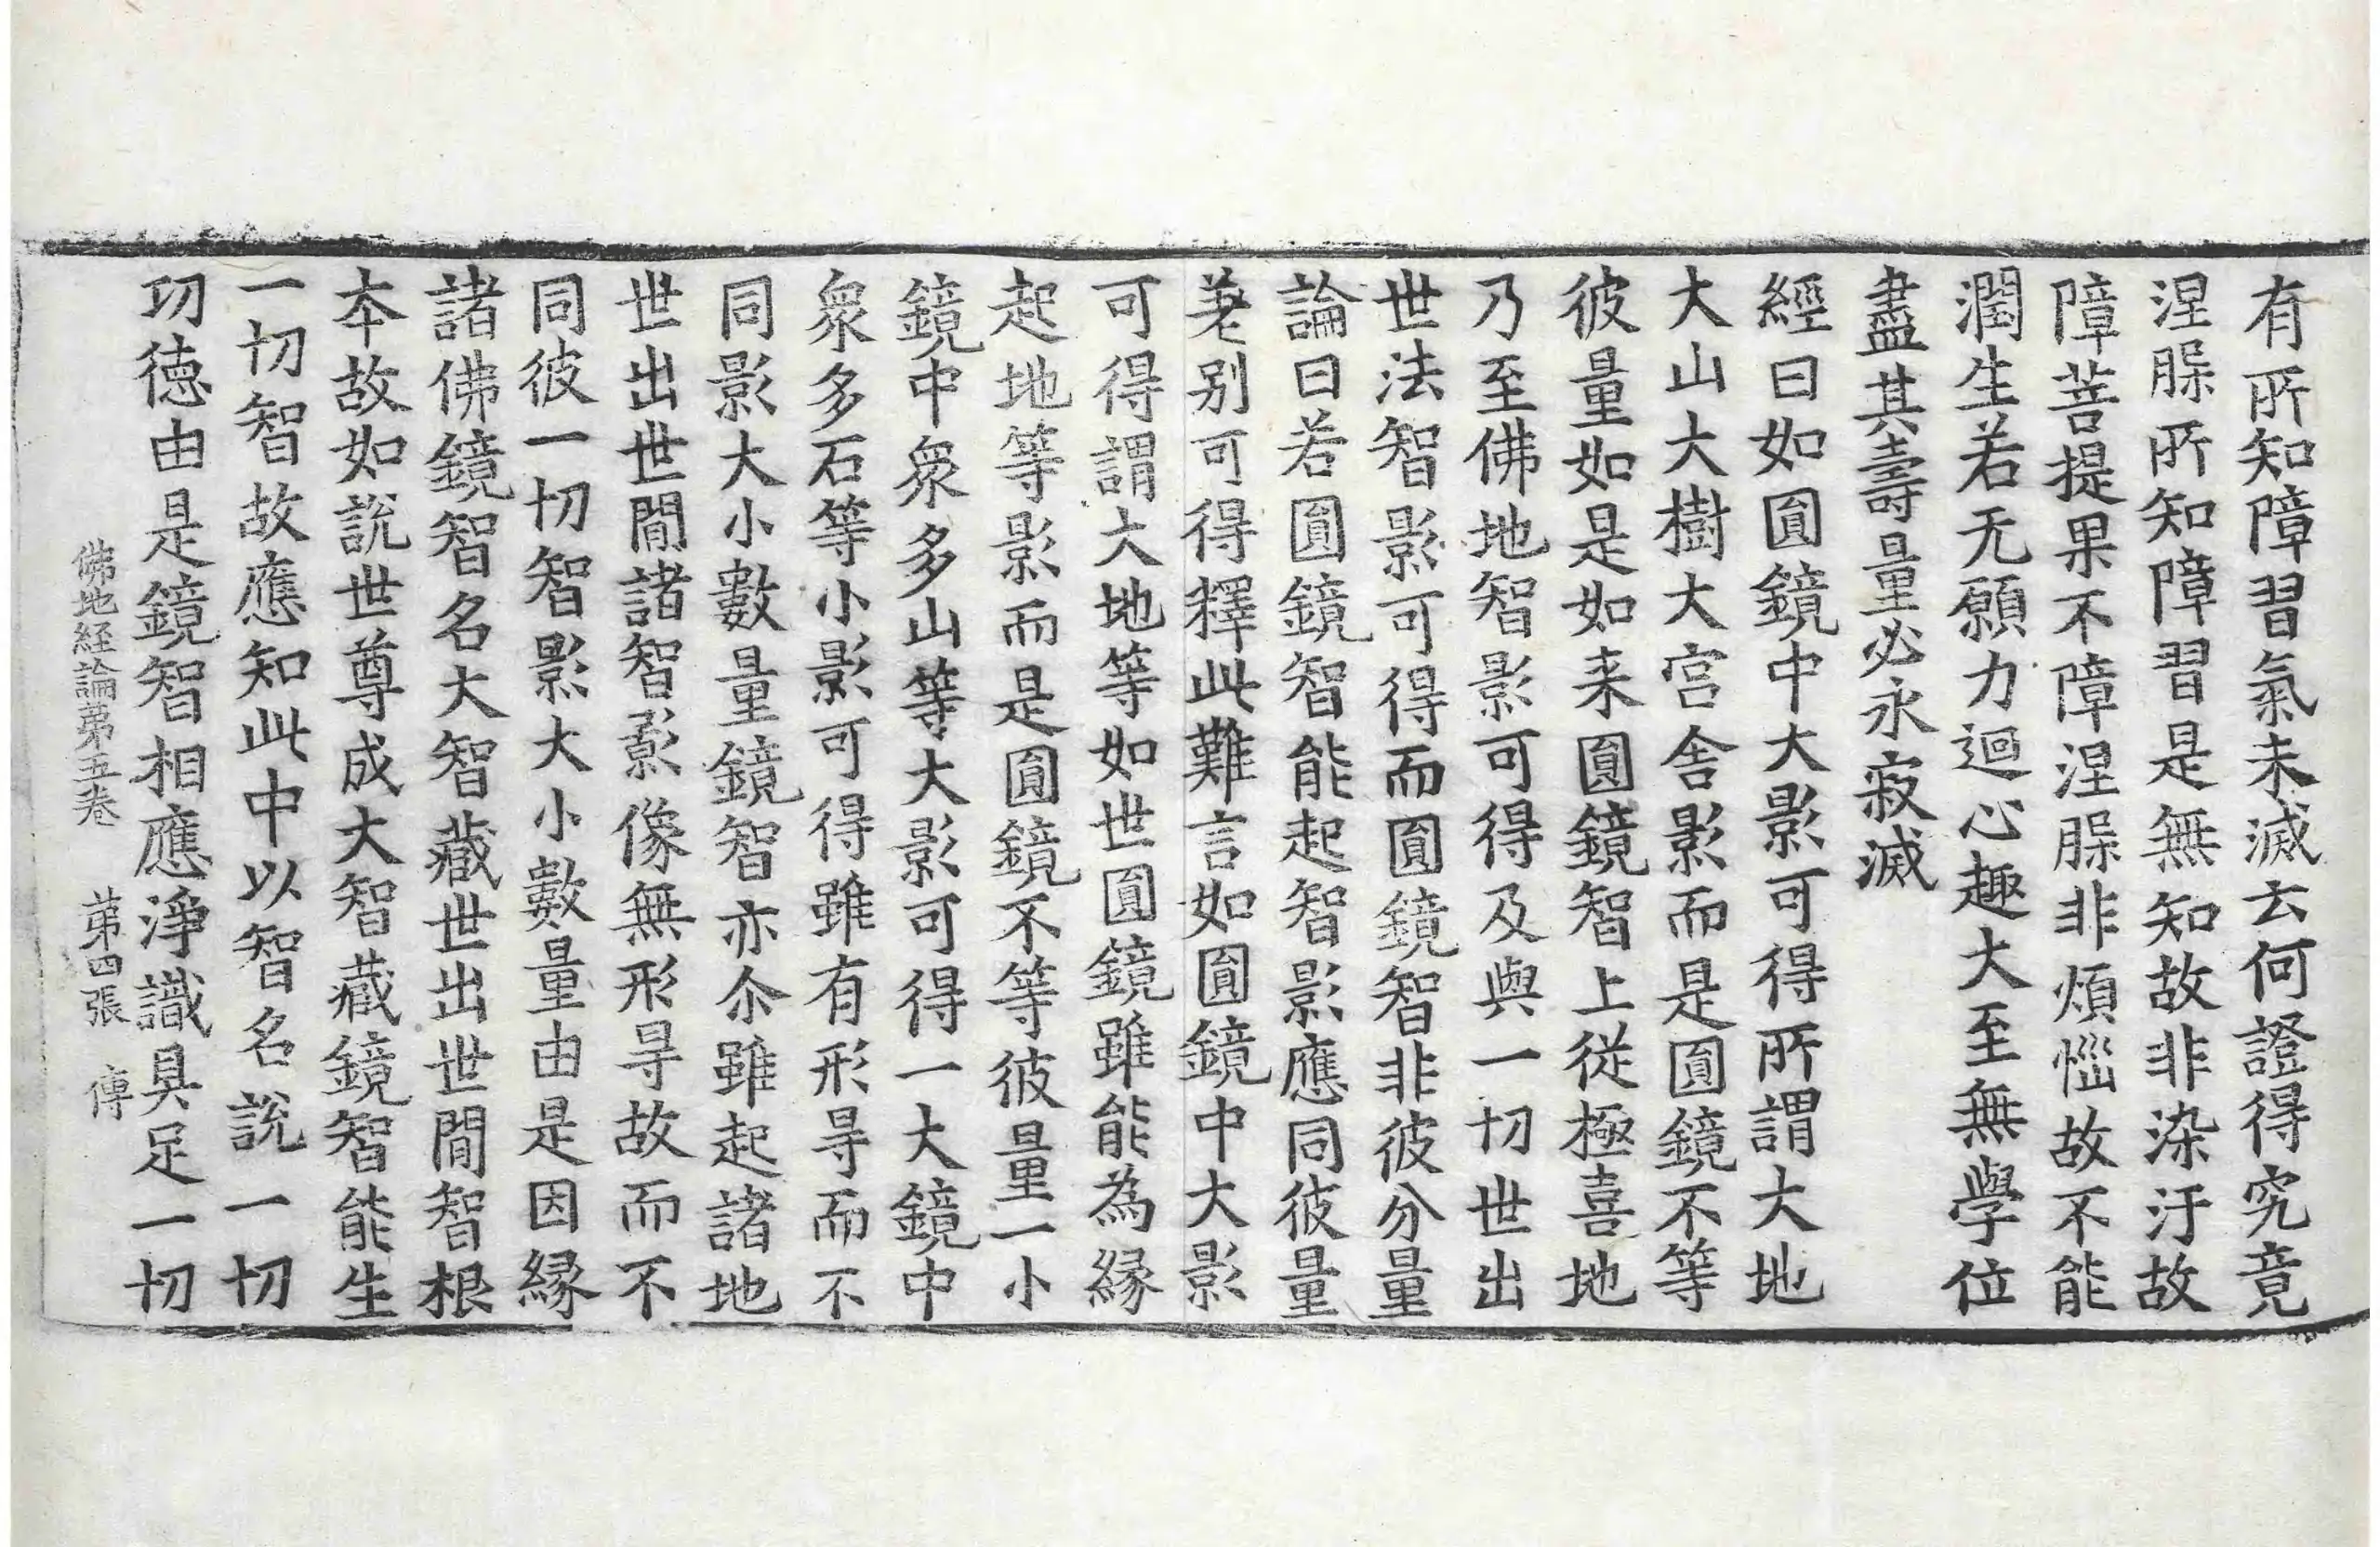 有所知障習氣未滅云何證得究竟
涅槃所知障習是無知故非染汙故
障菩提果不障涅槃非煩惱故不能
潤生若无願力迴心趣大至無學位
盡其壽量必永寂滅
經曰如圓鏡中大影可得所謂大地
大山大樹大宮舍影而是圓鏡不等
彼量如是如来圓鏡智上從極喜地
乃至佛地智影可得及與一切世出
世法智影可得而圓鏡智非彼分量
論曰若圓鏡智能起智影應同彼量
差别可得釋此難言如圓鏡中大影
可得謂大地等如世圓鏡雖能為縁
起地等影而是圓鏡不等彼量一小
鏡中衆多山等大影可得一大鏡中
衆多石等小影可得雖有形㝵而不
同影大小數量鏡智亦尒雖起諸地
世出世間諸智影像無形㝵故而不
同彼一切智影大小數量由是因縁
諸佛鏡智名大智藏世出世間智根
本故如說世尊成大智藏鏡智能生
一切智故應知此中以智名說一切
功徳由是鏡智相應淨識具足一切
佛地經論第五卷　第四張　傳